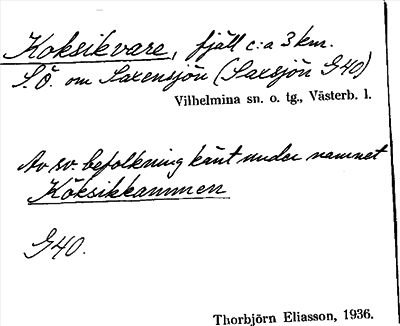 Koksikvare, fjäll c:a 3 km.
S.Ö. om Saxensjön (Saxsjön G40)
Vilhelmina sn. o. tg., Västerb. l.
Av sv. befolkning känt under namnet
Köksikkammen
G40.
Thorbjörn Eliasson, 1936.